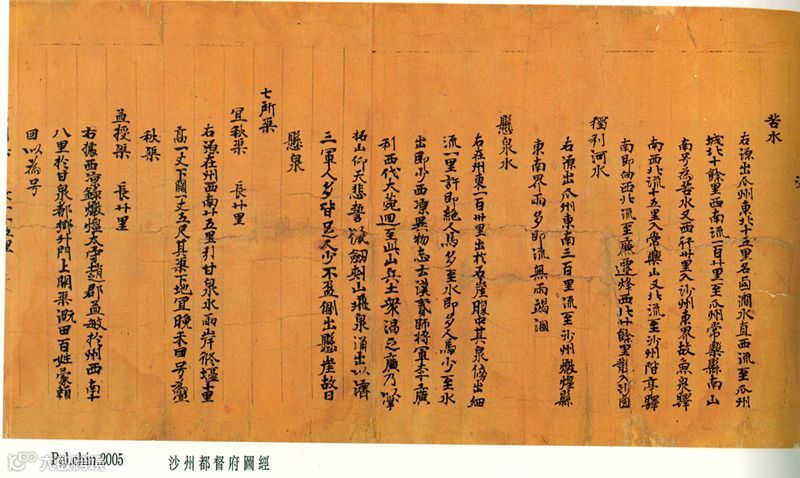 苦水
右源出瓜州東北十五里名鹵澗水直西流至瓜州
城北十餘里西南流一百廿里至瓜州常樂縣南山
南号為苦水又西行卅里入沙州東界故魚泉驛
南西北流十五里入常樂山又北流至沙州階亭驛
南即向西北流至廉遷烽西北廿餘里散入沙鹵
獨利河水
右源出瓜州東南三百里流至沙州燉煌縣
東南界雨多即流無雨竭涸
懸泉水
右在州東一百卅里出於石崖腹中其泉傍出細
流一里許即絕人馬多至水即多人馬少至水
出即少西涼異物志云漢貳師將軍李廣
利西伐大菀迴至此山兵士衆渴乏廣乃以掌
拓山仰天悲誓以佩劔刾山飛泉涌出以濟
三軍人多皆足人少不盈側出懸崖故曰
懸泉
七所渠
宜秋渠 長廿里
右源在州西南廿五里引甘泉水兩岸修堰十里
高一丈下闊一丈五尺其渠下地宜晚禾因号為宜
秋渠
孟授渠 長廿里
右據西涼録燉煌太守趙郡孟敏於州西南十
八里於甘泉都鄉斗門上開渠溉田百姓蒙賴
因以為号
Pel.chin.2005
沙州都督府圖經